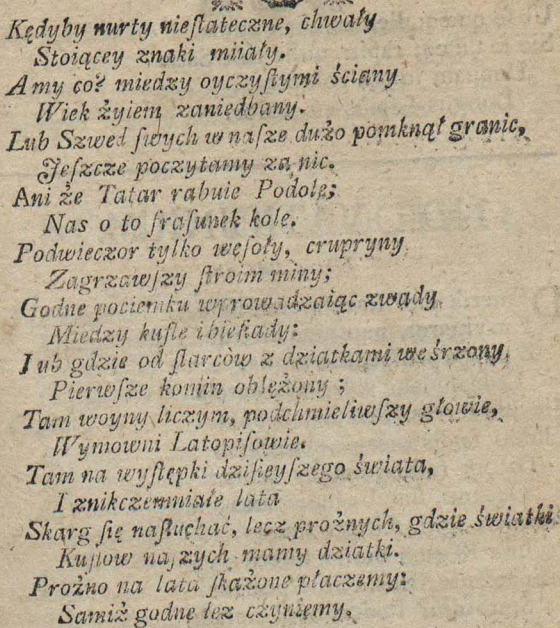 Kędyby nurty nieſtateczne, chwały
Stoiącey znaki miiały.
A my co? miedzy oyczyſtymi ściany
Wiek żyiem zaniedbany.
Lub Szwed ſwych w naſze dużo pomknął granic,
Jeſzcze poczytamy za nic.
Ani że Tatar rabuie Podole;
Nas o to fraſunek kole.
Podwieczor tylko weſoły, crupryny
Zagrzawſzy ſtroim miny;
Godne pociemku wprowadzaiąc zwady
Miedzy kufle i bieſiady:
Lub gdzie od ſtarcow z dziatkami weśrzony,
Pierwſze komin oblężony;
Tam woyny liczym, podchmieliwſzy głowie,
Wymowni Latopiſowie.
Tam na wyſtępki dziſieyſzego świata,
I znikczemniałe lata
Skarg ſię naſłuchać, lecz prożnych, gdzie światki
Kuflow naſzych mamy dziatki.
Prożno na lata ſkażone płaczemy:
Samiż godne łez czyniemy.